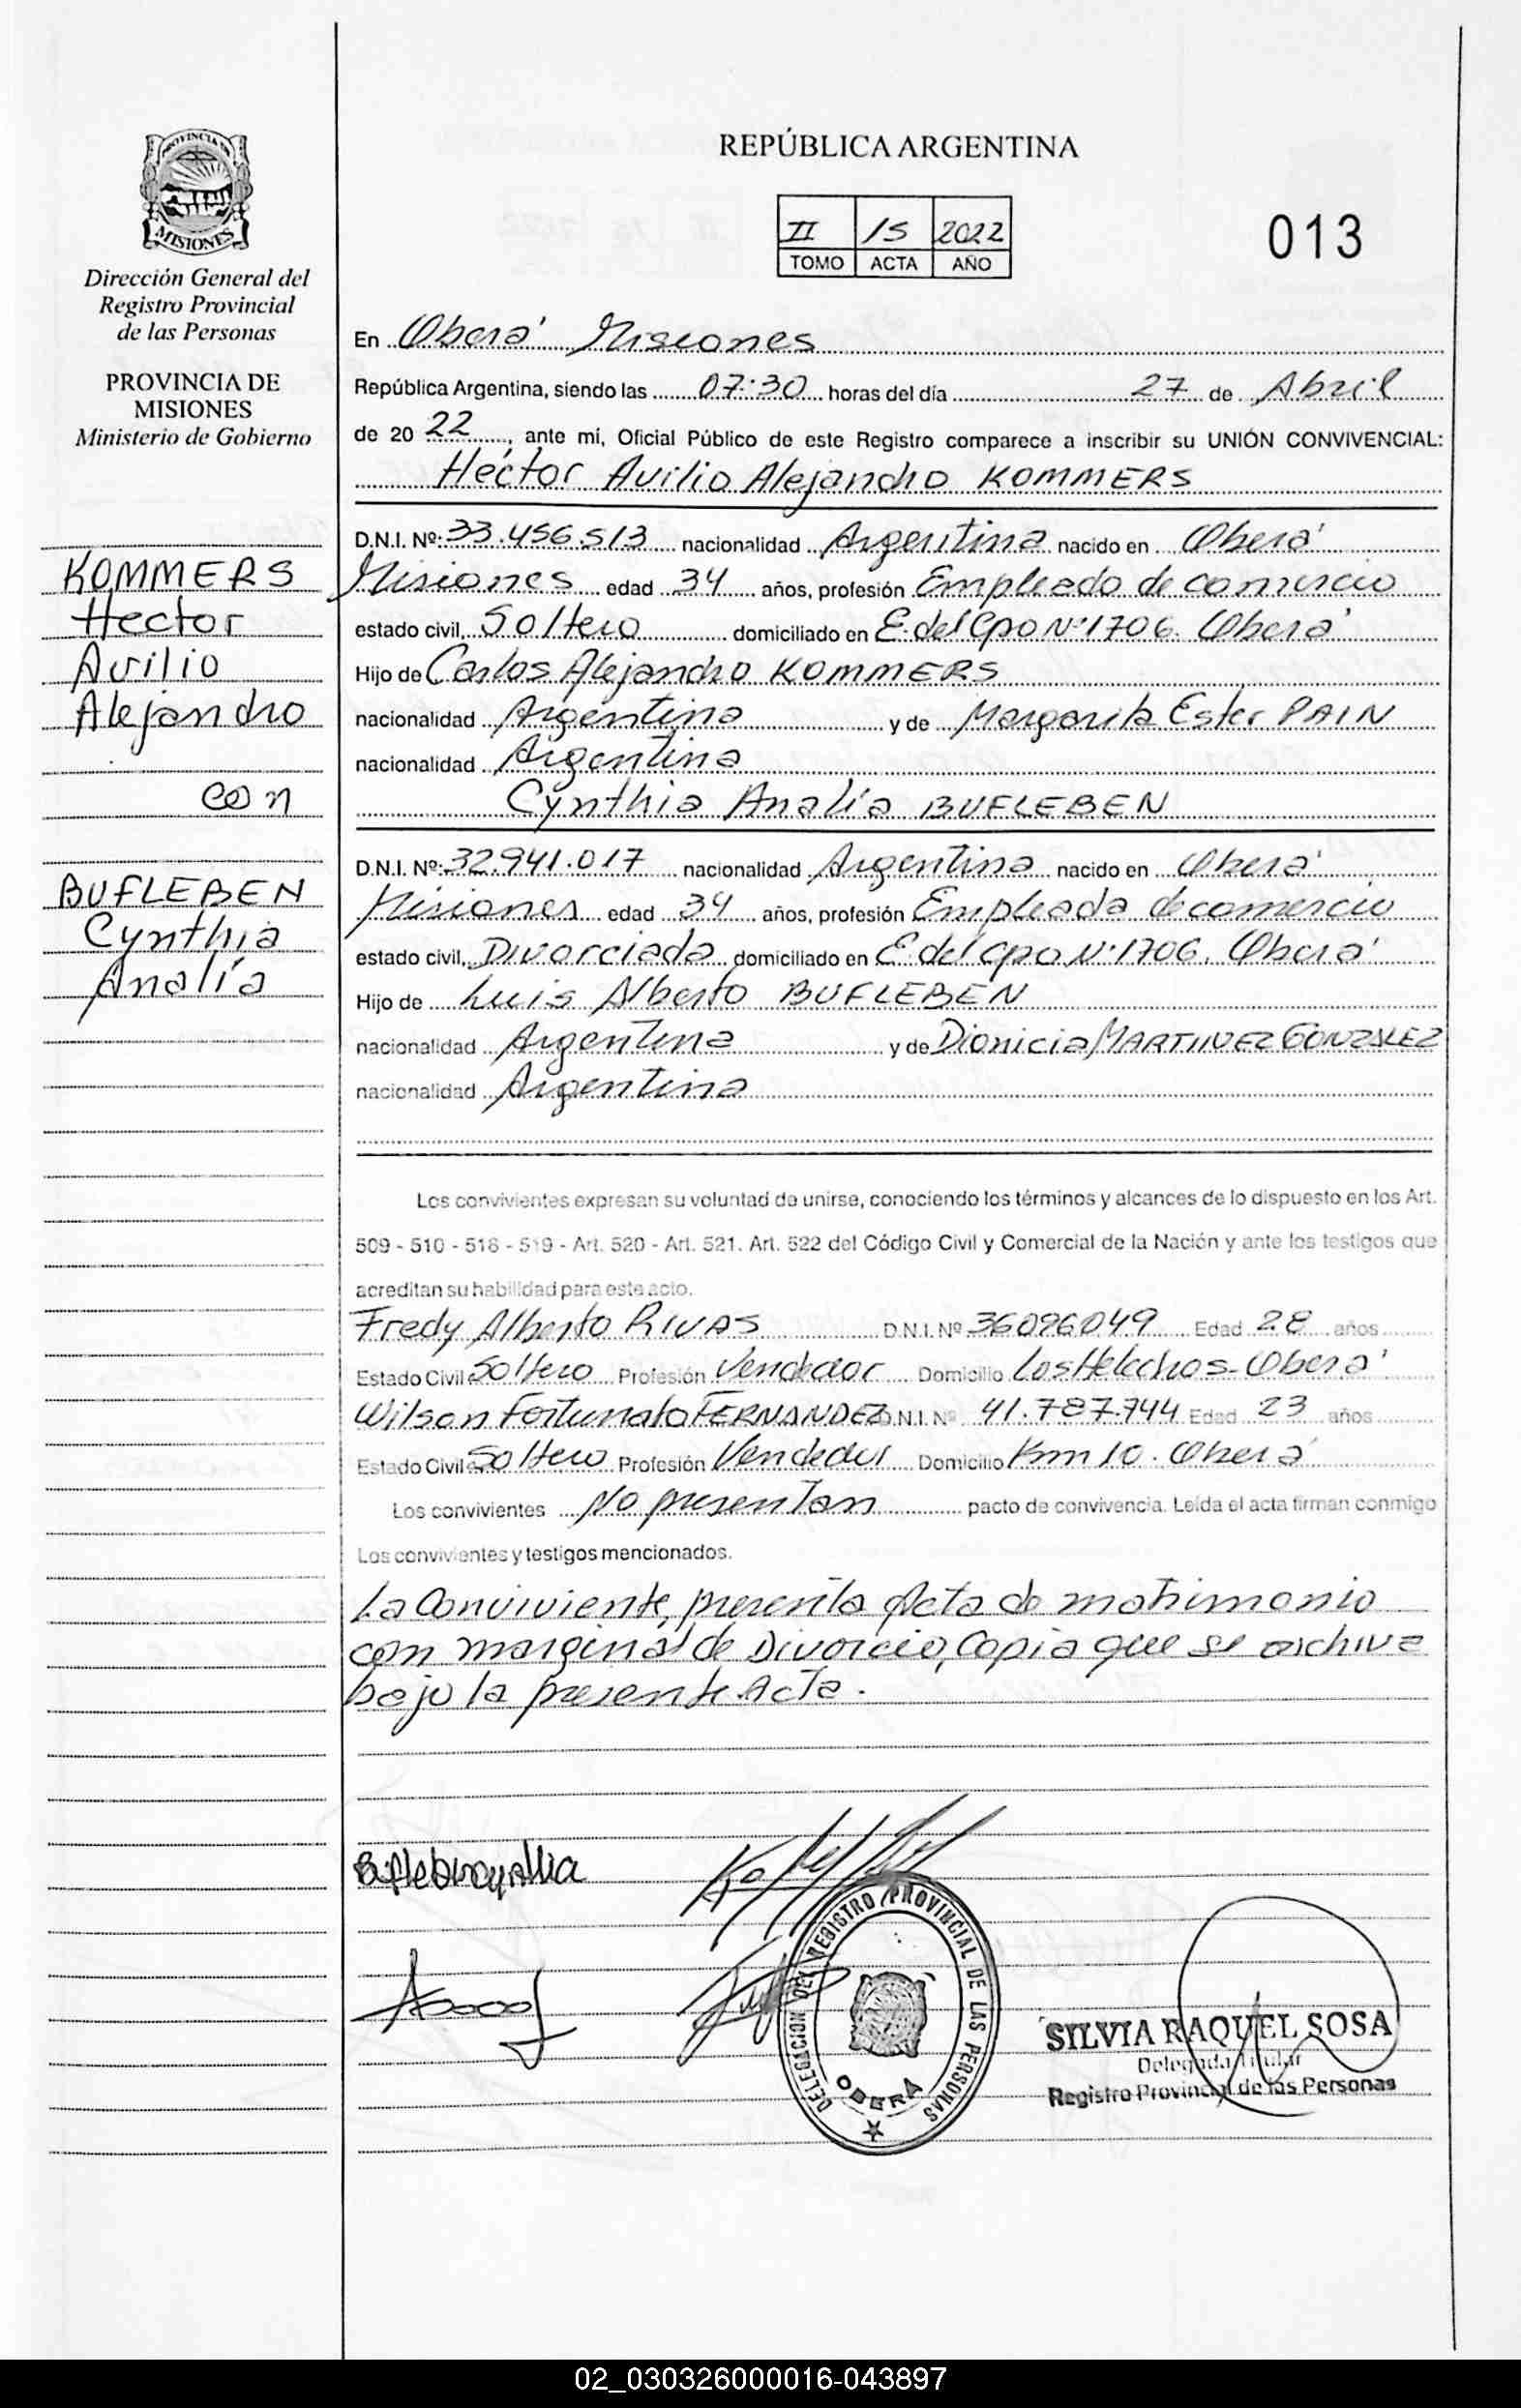 PROVINCIA DE
MISIONES
Dirección General del
Registro Provincial
de las Personas
PROVINCIA DE
MISIONES
Ministerio de Gobierno
KOMMERS
Hector
Avilio
Alejandro
con
BUFLEBEN
Cynthia
Analía
REPÚBLICA ARGENTINA
II 15 2022
TOMO ACTA AÑO
013
En Oberá Misiones
República Argentina, siendo las 07:30 horas del día 27 de Abril
de 20 22, ante mí, Oficial Público de este Registro comparece a inscribir su UNIÓN CONVIVENCIAL:
Héctor Avilio Alejandro KOMMERS
D.N.I. Nº: 33.456.513 nacionalidad Argentina nacido en Oberá
Misiones edad 34 años, profesión Empleado de comercio
estado civil, Soltero domiciliado en E. del Cpo Nº 1706. Oberá
Hijo de Carlos Alejandro KOMMERS
nacionalidad Argentina y de Margarita Ester PAIN
nacionalidad Argentina
Cynthia Analía BUFLEBEN
D.N.I. Nº: 32.941.017 nacionalidad Argentina nacido en Oberá
Misiones edad 34 años, profesión Empleada de comercio
estado civil, Divorciada domiciliado en E. del Cpo Nº 1706. Oberá
Hijo de Luis Alberto BUFLEBEN
nacionalidad Argentina y de Dionicia MARTINEZ GONZALEZ
nacionalidad Argentina
Los convivientes expresan su voluntad de unirse, conociendo los términos y alcances de lo dispuesto en los Art.
509 - 510 - 518 - 519 - Art. 520 - Art. 521. Art. 522 del Código Civil y Comercial de la Nación y ante los testigos que
acreditan su habilidad para este acto.
Fredy Alberto RIVAS D.N.I. Nº 36096049 Edad 28 años
Estado Civil Soltero Profesión Vendedor Domicilio Los Helechos - Oberá
Wilson Fortunato FERNANDEZ D.N.I. Nº 41.787.744 Edad 23 años
Estado Civil Soltero Profesión Vendedor Domicilio Km 10. Oberá
Los convivientes No presentan pacto de convivencia. Leída el acta firman conmigo
Los convivientes y testigos mencionados.
La Conviviente, presenta Acta de matrimonio
con marginal de Divorcio, Copia que se archiva
bajo la presente Acta.
Bufleben Cynthia
DELEGACION DEL REGISTRO PROVINCIAL DE LAS PERSONAS
OBERÁ
SILVIA RAQUEL SOSA
Delegada Titular
Registro Provincial de las Personas
02_030326000016-043897